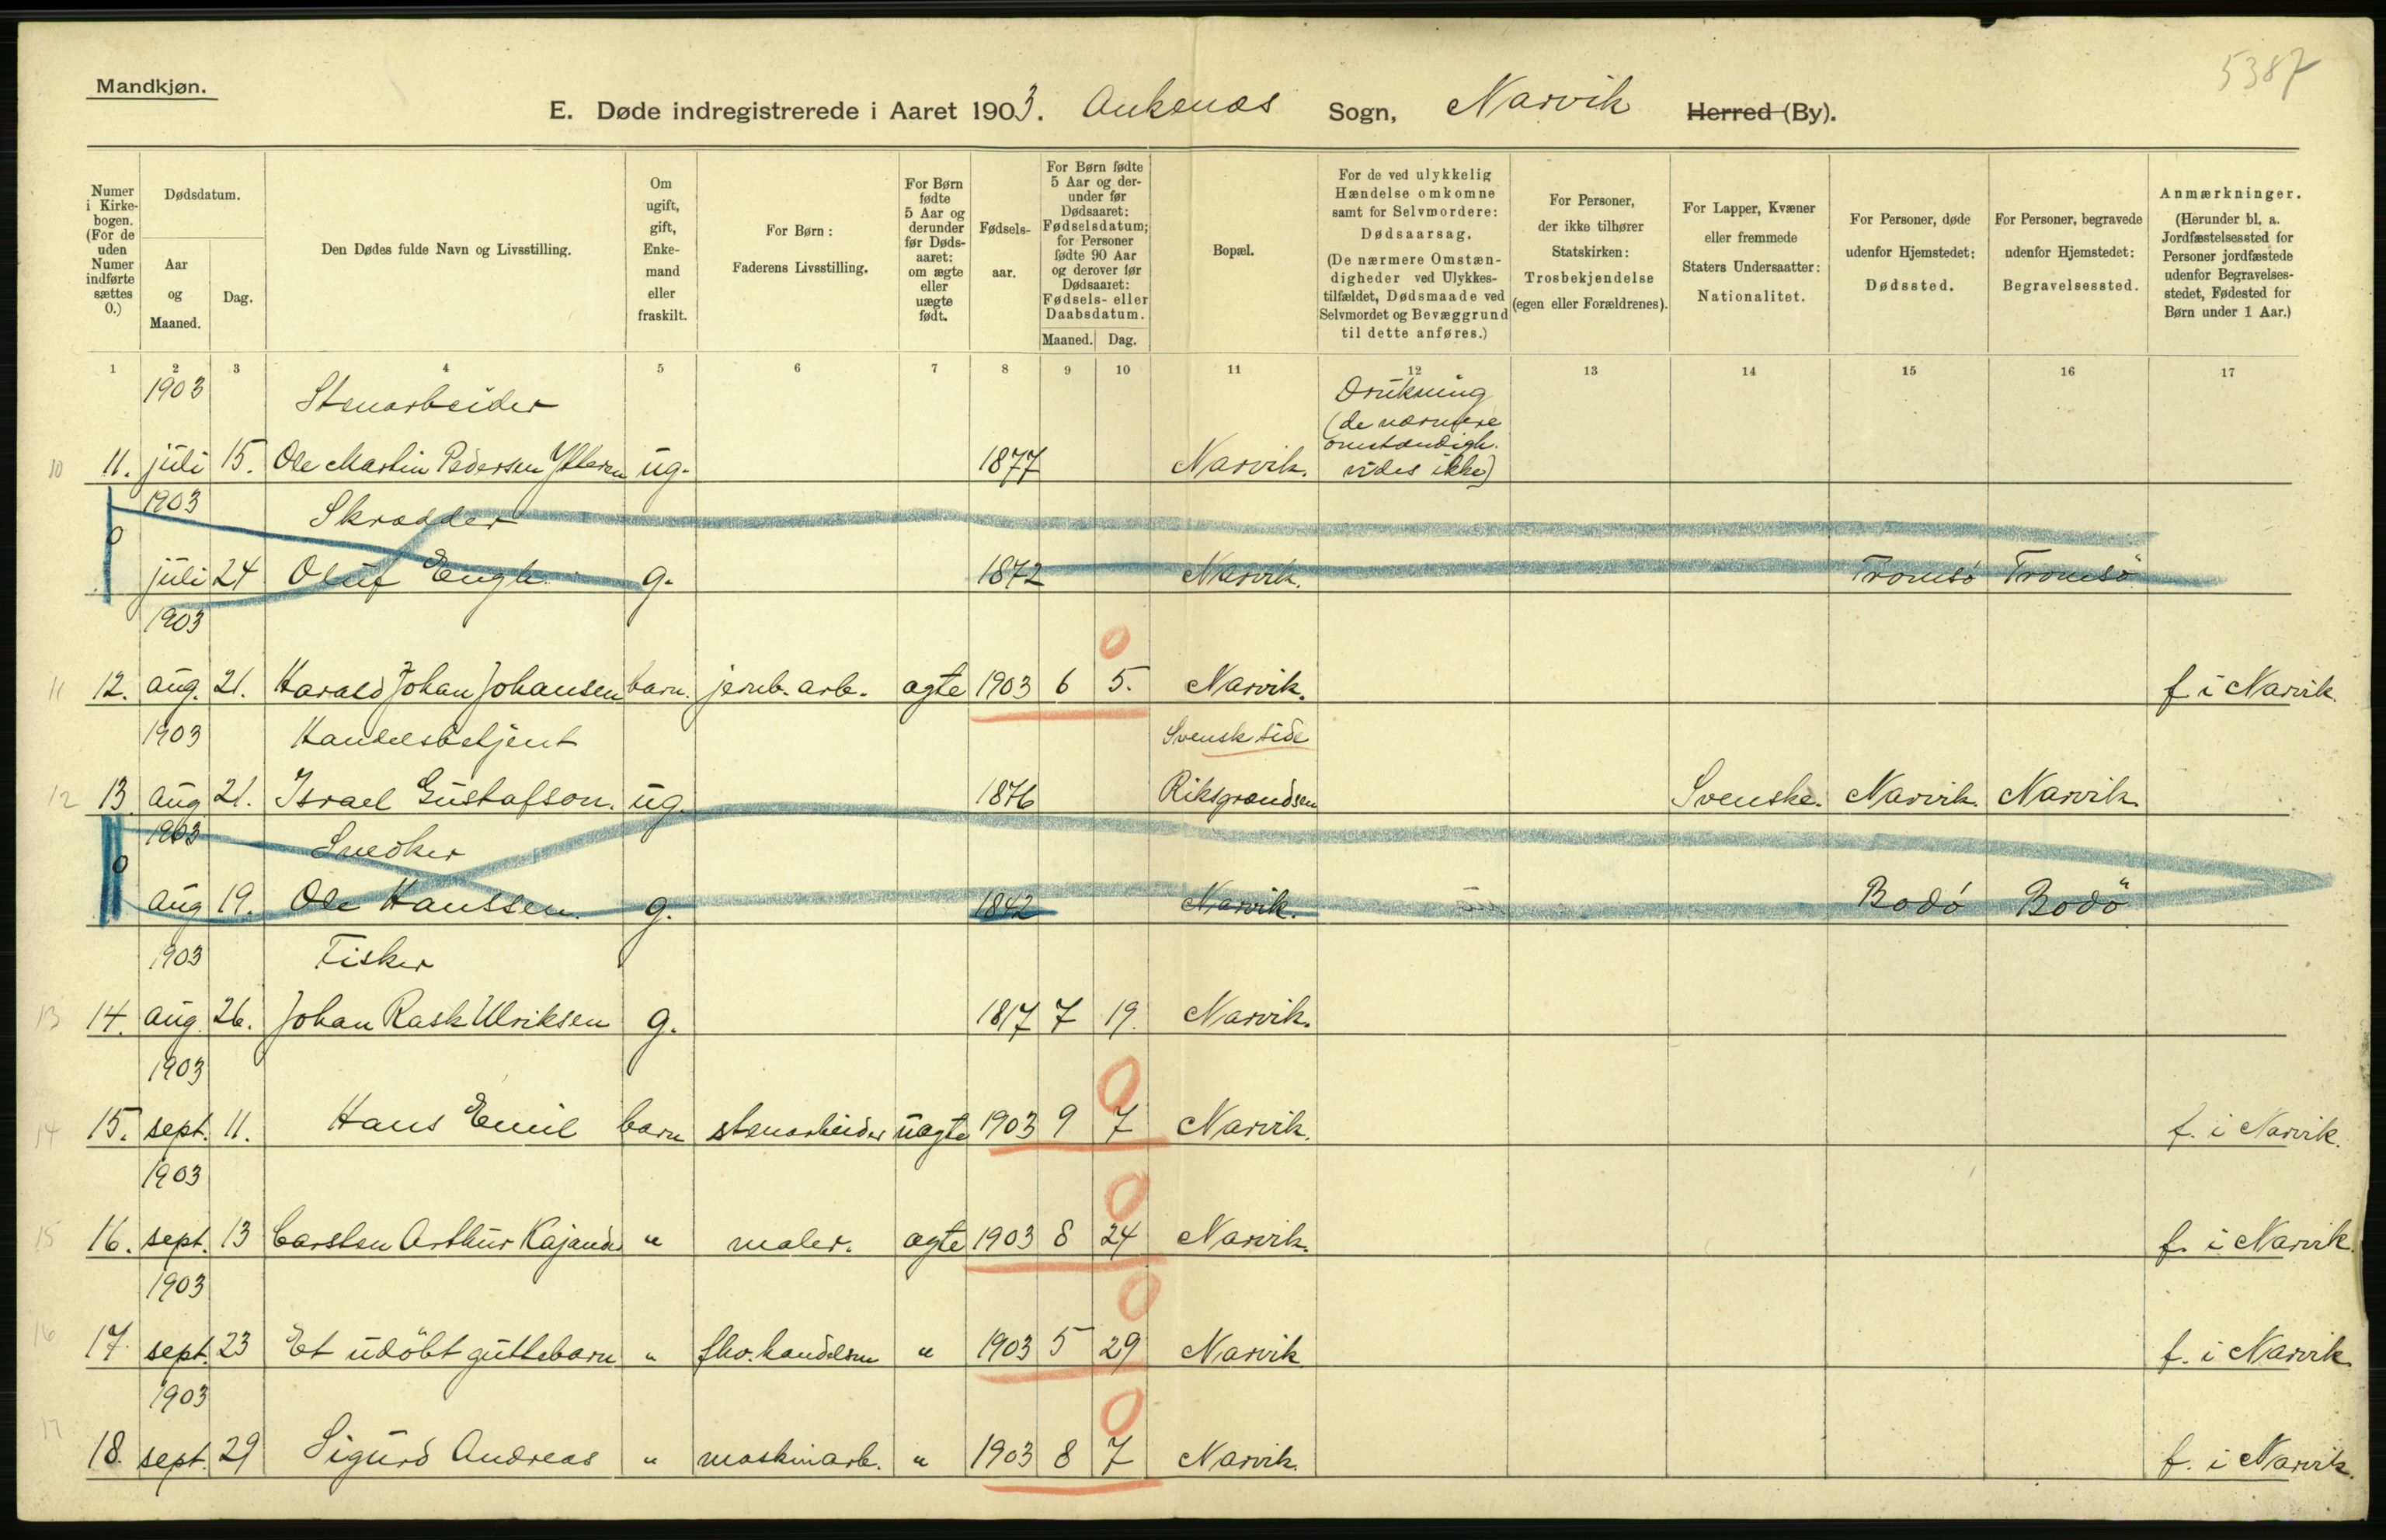 5387
Mandkjøn.
E. Døde indregistrerede i Aaret 1903. Ankenæs Sogn, Narvik Herred (By).
Numer i Kirke-bogen. (For de uden Numer indførte sættes 0.)
Dødsdatum.
Aar og Maaned.
Dag.
Den Dødes fulde Navn og Livsstilling.
Om ugift, gift, Enke-mand eller fraskilt.
For Børn: Faderens Livsstilling.
For Børn fødte 5 Aar og derunder før Døds-aaret: om ægte eller uægte født.
Fødsels-aar.
For Børn fødte 5 Aar og der-under før Dødsaaret: Fødselsdatum; for Personer fødte 90 Aar og derover før Dødsaaret: Fødsels- eller Daabsdatum.
Maaned. Dag.
Bopæl.
For de ved ulykkelig Hændelse omkomne samt for Selvmordere: Dødsaarsag. (De nærmere Omstæn-digheder ved Ulykkes-tilfældet, Dødsmaade ved Selvmordet og Bevæggrund til dette anføres.)
For Personer, der ikke tilhører Statskirken: Trosbekjendelse (egen eller Forældrenes).
For Lapper, Kvæner eller fremmede Staters Undersaatter: Nationalitet.
For Personer, døde udenfor Hjemstedet: Dødssted.
For Personer, begravede udenfor Hjemstedet: Begravelsessted.
Anmærkninger. (Herunder bl. a. Jordfæstelsessted for Personer jordfæstede udenfor Begravelses-stedet, Fødested for Børn under 1 Aar.)
1 2 3 4 5 6 7 8 9 10 11 12 13 14 15 16 17
1903 Stenarbeider Drukning
(de nærmere
omstændigh.
10 11. juli 15. Ole Martin Pedersen ug. 1877 Narvik. vides ikke)
1903 Skrædder
0 juli 24 Oluf Engh. g. 1872 Narvik. Tromsö Tromsö
1903 0
11 12. aug. 21. Harald Johan Johansen barn. jernb. arb. ægte 1903 6 5. Narvik. f. i Narvik.
1903 Handelsbetjent Svensk side
12 13 aug 21. Israel Gustafson. ug. 1876 Riksgrændsen Svenske. Narvik. Narvik.
1903 Snedker
0 aug 19. Ole Hanssen. g. 1842 Narvik. Bodö Bodö
1903 Fisker
13 14. aug. 26. Johan Rask Ulriksen g. 1817 7 19. Narvik.
1903 0
14 15. sept. 11. Hans Emil barn stenarbeider uægte 1903 9 7 Narvik. f. i Narvik.
1903 0
15 16. sept. 13 Carsten Arthur Kajande " maler. ægte 1903 8 24 Narvik. f. i Narvik.
1903 0
16 17. sept. 23 Et udöbt guttebarn " fhv. handelsm " 1903 5 29 Narvik f. i Narvik.
1903 0
17 18. sept. 29 Sigurd Andreas " maskinarb. " 1903 8 7 Narvik. f. i Narvik.